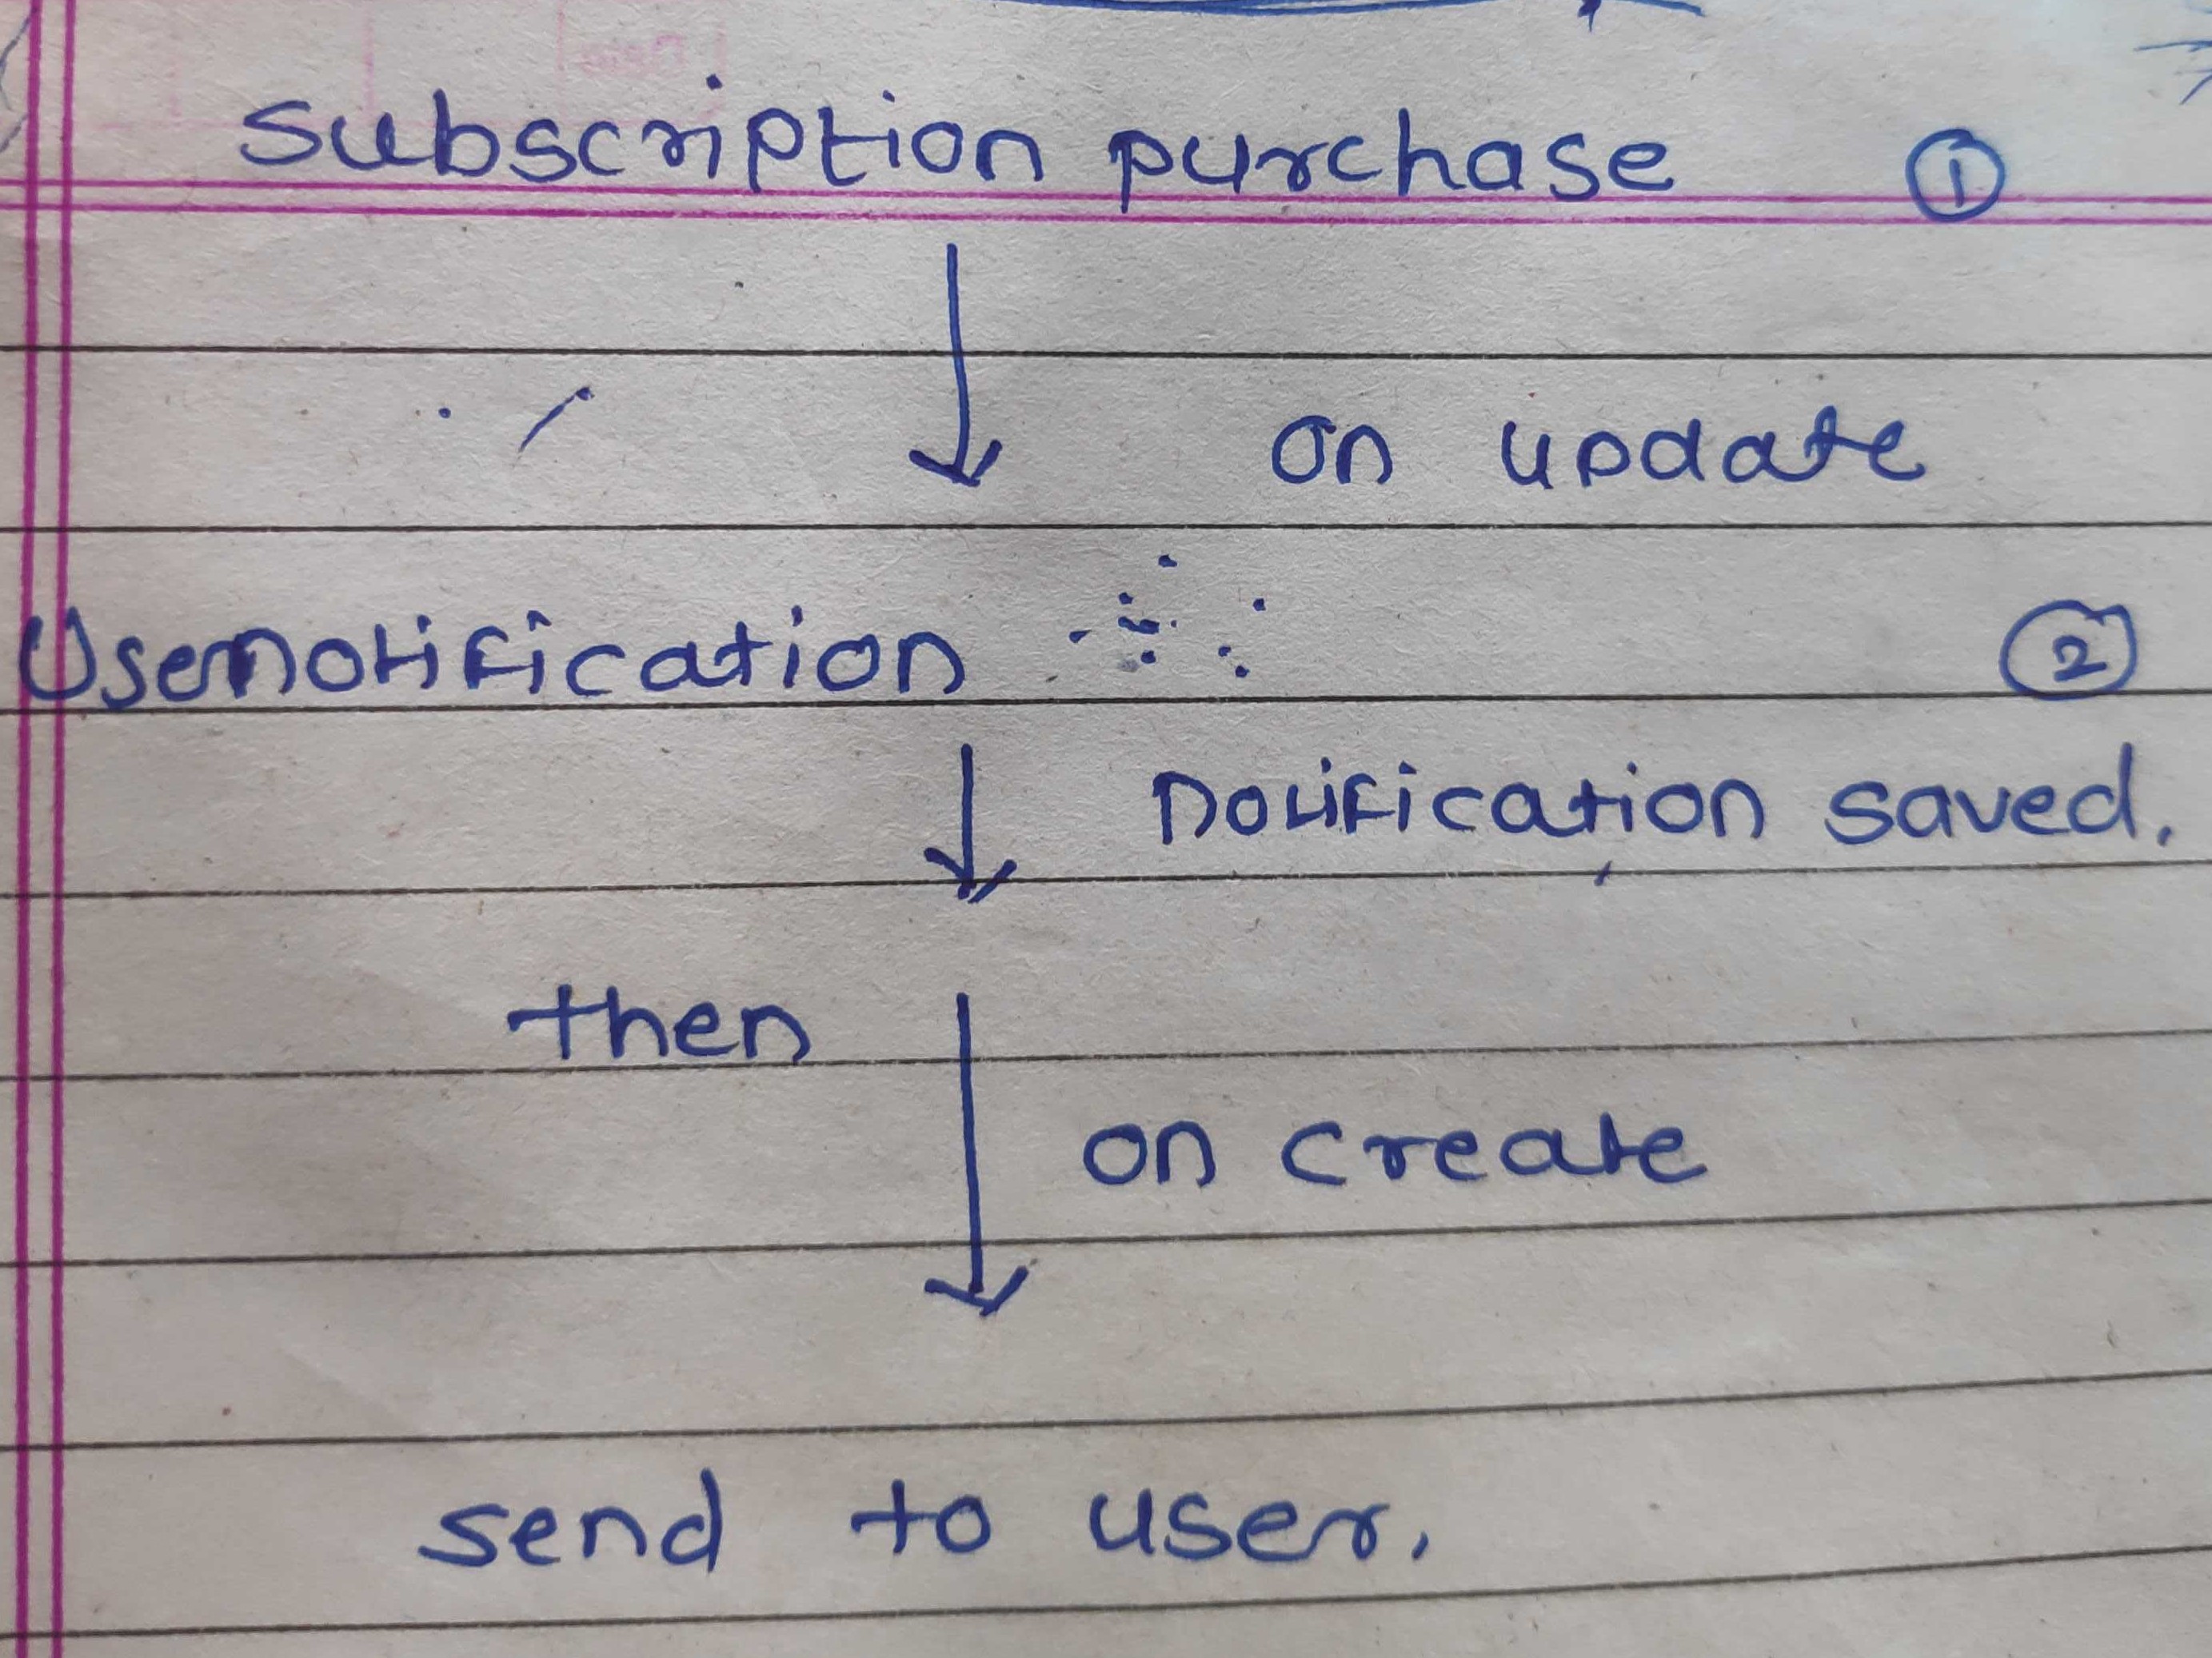 subscription purchase ①
on update
Usenotification ②
notification saved.
then
on create
send to user.